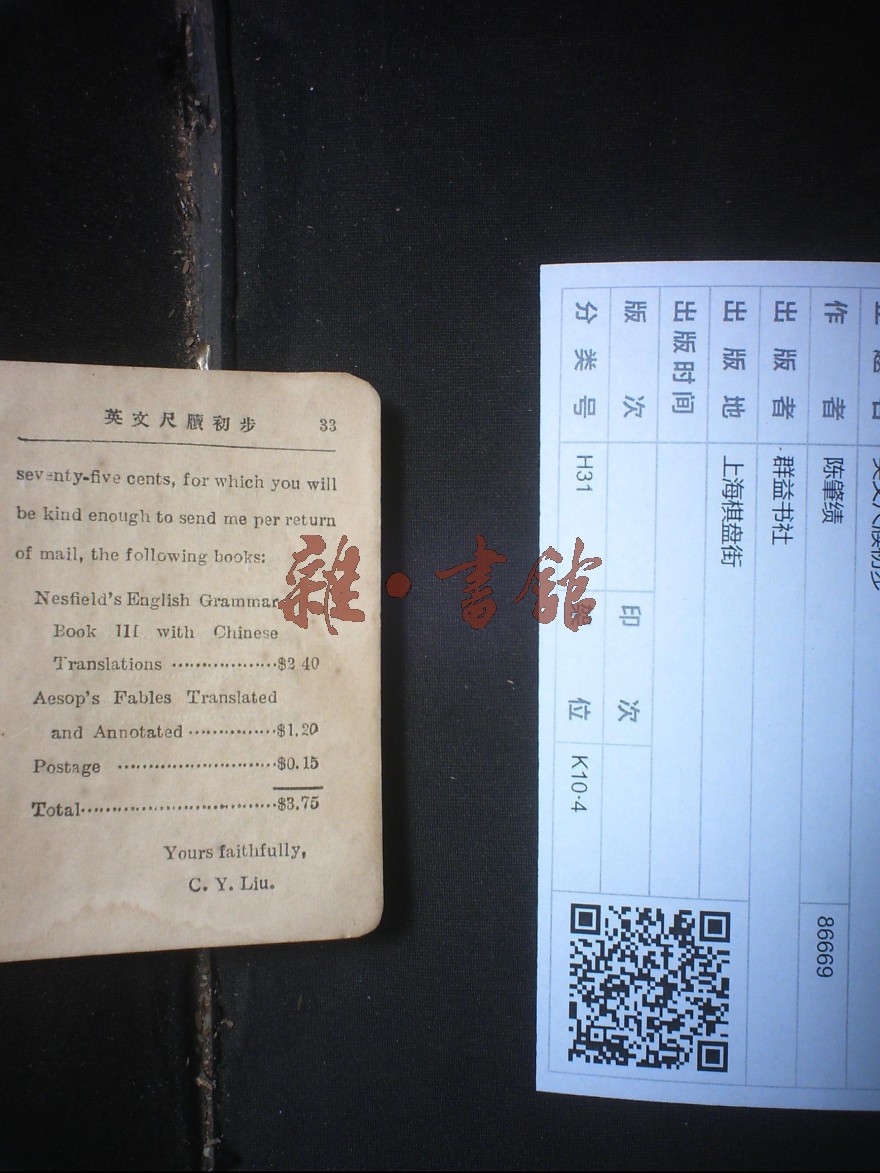 英文尺牘初步 33
seventy-five cents, for which you will
be kind enough to send me per return
of mail, the following books:
Nesfield's English Grammar
Book III with Chinese
Translations ··················$2 40
Aesop's Fables Translated
and Annotated ···············$1.20
Postage ···························$0.15
Total·································$3.75
Yours faithfully,
C. Y. Liu.
雜·書館
作者 陈肇绩 86669
出版者 群益书社
出版地 上海棋盘街
出版时间
版次 印次
分类号 H31 架位 K10-4